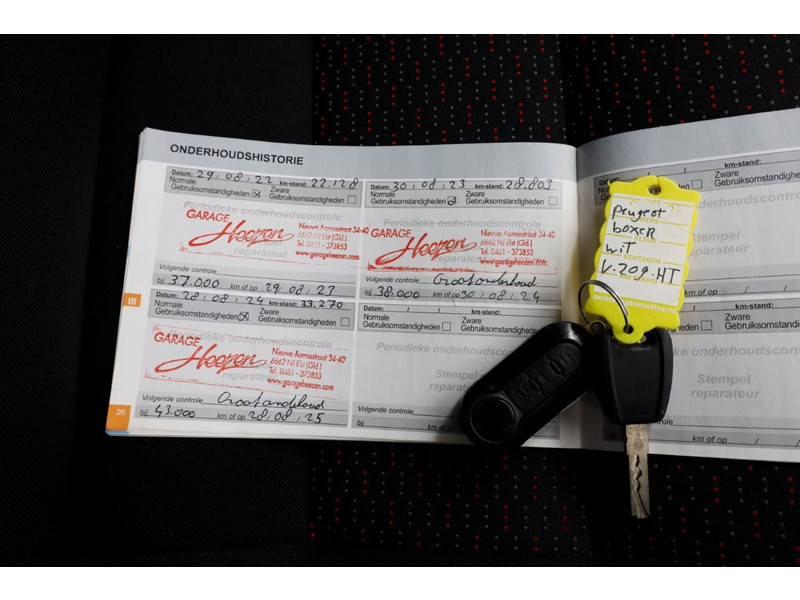 ONDERHOUDSHISTORIE
Datum: 29 , 08 , 22 km-stand: 22.128
Normale Gebruiksomstandigheden
Zware Gebruiksomstandigheden
Periodieke onderhoudscontrole
GARAGE
Heezen
Nieuwe Aamsestraat 34-40
6662 NJ Elst (Gld.)
Tel. 0481 - 373853
www.garageheezen.com
reparateur
Volgende controle
bij 37.000 km of op 29 , 08 , 23
Datum: 30 , 08 , 23 km-stand: 28.803
Normale Gebruiksomstandigheden
Zware Gebruiksomstandigheden
Periodieke onderhoudscontrole
GARAGE
Heezen
Nieuwe Aamsestraat 34-40
6662 NJ Elst (Gld.)
Tel. 0481 - 373853
www.garageheezen.com
reparateur
Volgende controle Groot onderhoud
bij 38.000 km of op 30 , 08 , 24
III
Datum: 28 , 08 , 24 km-stand: 33.270
Normale Gebruiksomstandigheden
Zware Gebruiksomstandigheden
GARAGE
Heezen
Nieuwe Aamsestraat 34-40
6662 NJ Elst (Gld.)
Tel. 0481 - 373853
www.garageheezen.com
reparateur
Volgende controle
bij 43.000 km of op 28 , 08 , 25
26
Datum: / / km-stand:
Normale Gebruiksomstandigheden
Zware Gebruiksomstandigheden
Periodieke onderhoudscontrole
Stempel
Volgende controle
bij
km-stand:
Zware
Gebruiksomstandigheden
Stempel
reparateur
km of op / /
TYPE
Peugeot
boxer
KLEUR
wit
KENTEKEN
V-209-HT
km-stand:
Zware
Gebruiksomstandigheden
Periodieke onderhoudscontrole
Stempel
reparateur
km of op / /